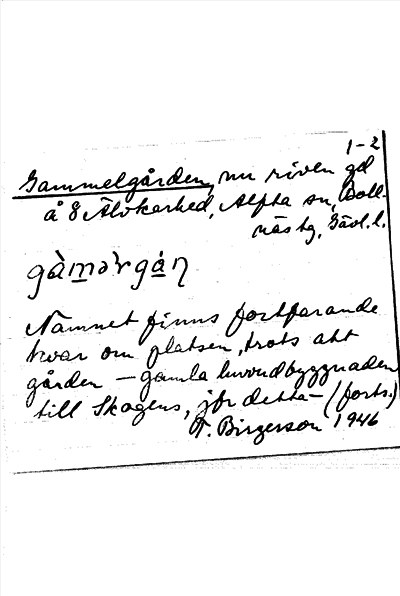 1-2
Gammelgården, nu riven gd
å 8 Älvkarhed, Alfta sn, Boll-
näs tg, Gävl. l.
gàmər gán
Namnet finns fortfarande
kvar om platsen, trots att
gården – gamla huvudbyggnaden
till Skogens, jfr detta – (forts.)
T. Birgerson 1946